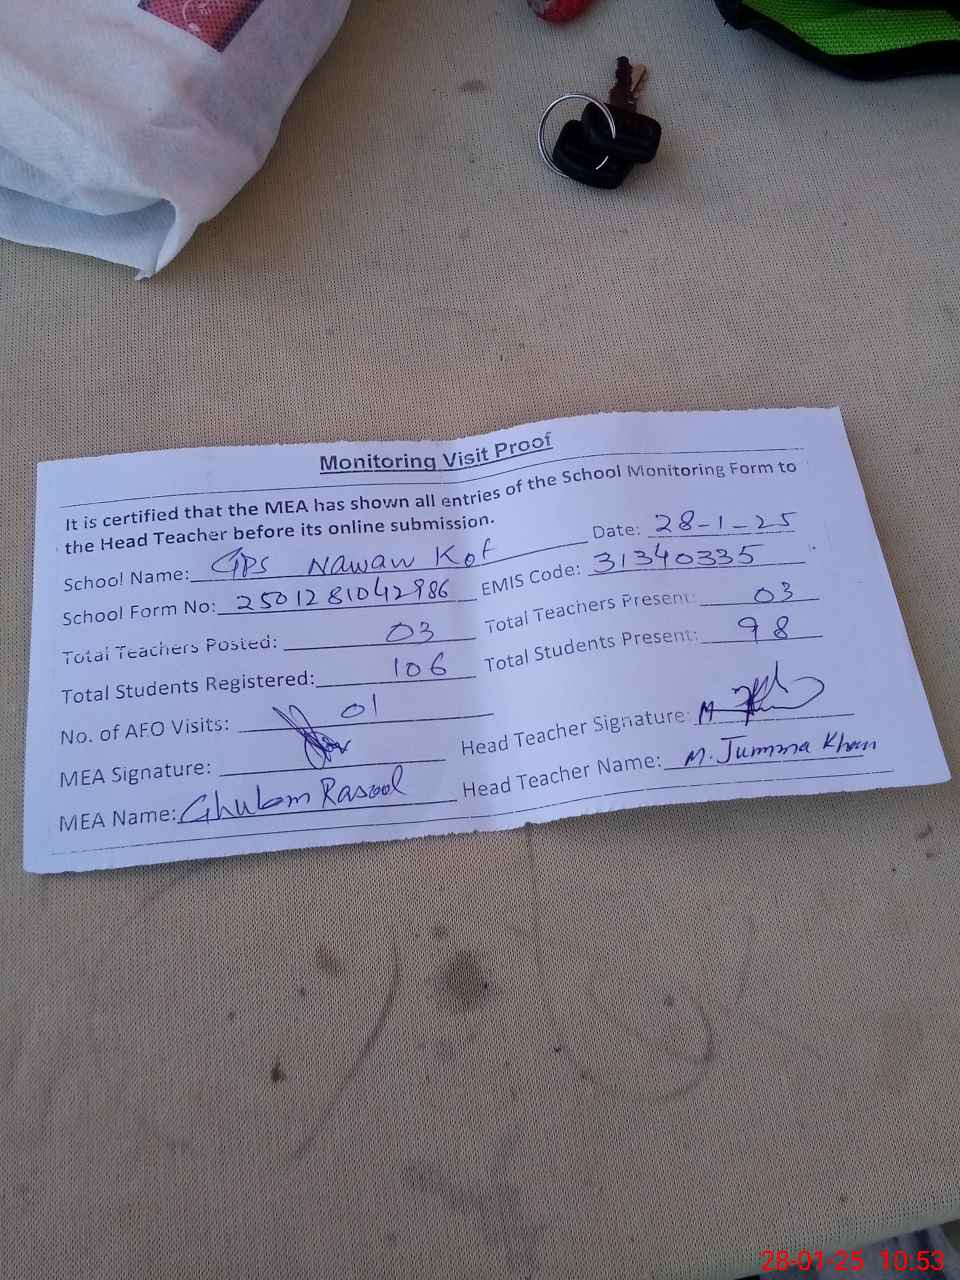 Monitoring Visit Proof
It is certified that the MEA has shown all entries of the School Monitoring Form to
the Head Teacher before its online submission.
School Name: GPS Nawaw Kot Date: 28-1-25
School Form No: 2501281042986 EMIS Code: 31340335
Total Teachers Posted: 03 Total Teachers Present: 03
Total Students Registered: 106 Total Students Present: 98
No. of AFO Visits: 01
MEA Signature: Head Teacher Signature: M
MEA Name: Ghulam Rasool Head Teacher Name: M. Jumma Khan
28-01-25 10:53